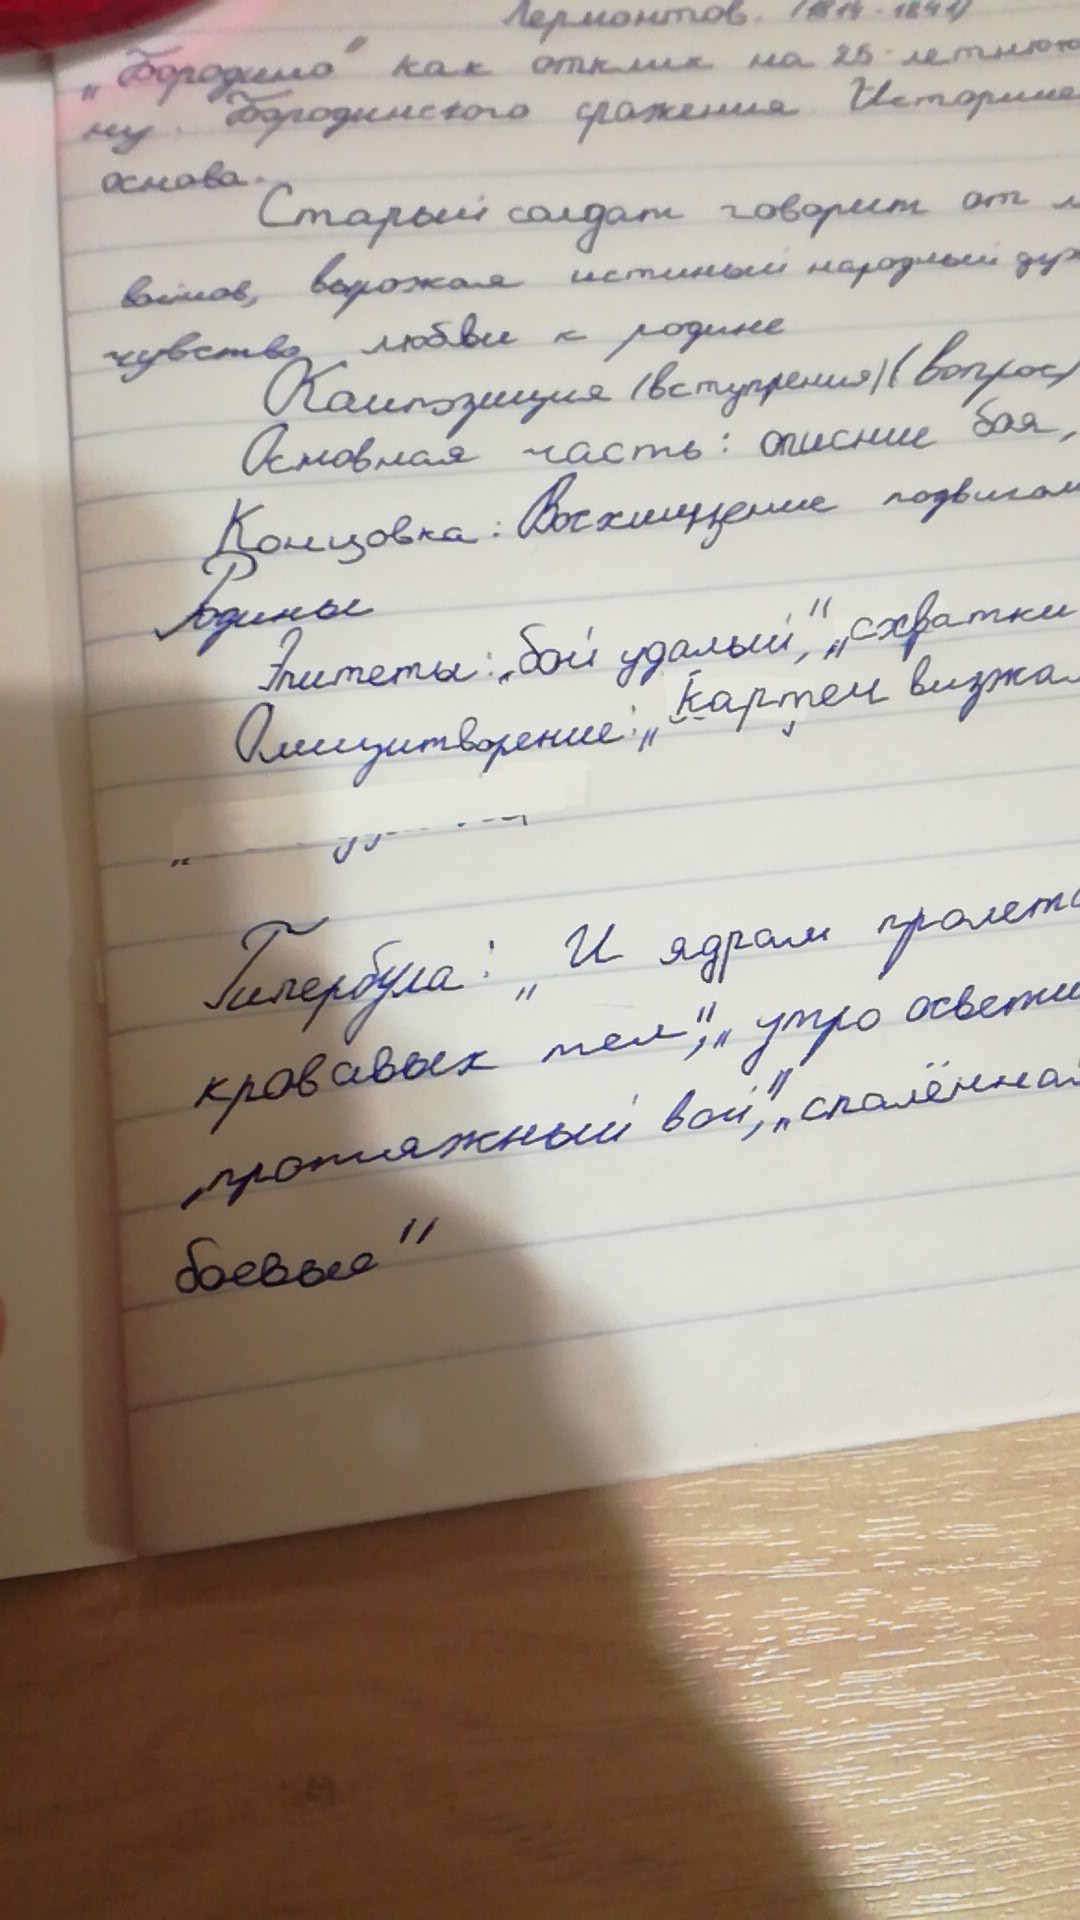 Лермонтов. (1814-1841)
„Бородино" как отклик на 25-летнюю
ну Бородинского сражения Историче
основа.
Старый солдат говорит от л
воинов, выражая истиный народный дух
чувство любви к родине
Композиция (вступления) (вопрос)
Основная часть: описние боя,
Концовка: Восхищение подвигом
Родины
Эпитеты: „бой удалый", „схватки
Олицитворение: „картеч визжал
Гипербула: „И ядрам пролета
кровавых тел", „утро освети
„протяжный вой", „спалённая
боевые"